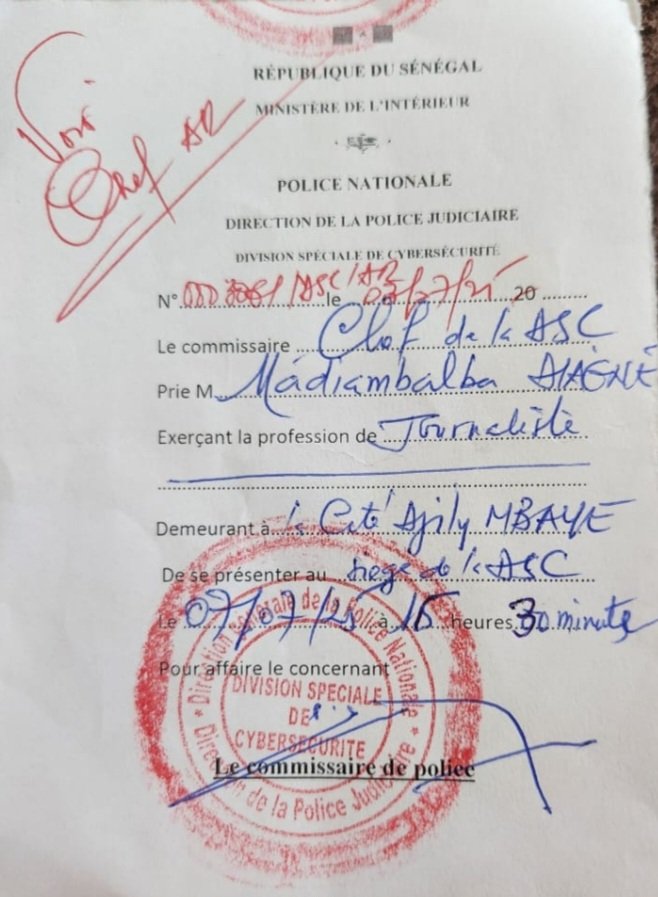 Voir
Chef AR
RÉPUBLIQUE DU SÉNÉGAL
MINISTÈRE DE L'INTÉRIEUR
POLICE NATIONALE
DIRECTION DE LA POLICE JUDICIAIRE
DIVISION SPÉCIALE DE CYBERSÉCURITÉ
N° /ASC/AR le 07/07/25 20
Le commissaire Chef de la ASC
Prie M Madiambalba DIAGNE
Exerçant la profession de Journaliste
Demeurant à la Cité MBAYE
De se présenter au siege de la ASC
Le 07/07/25 à 15 heures 30 minute
Pour affaire le concernant
Direction Générale de la Police Nationale
DIVISION SPECIALE
DE
CYBERSECURITE
Direction de la Police Judiciaire
Le commissaire de police